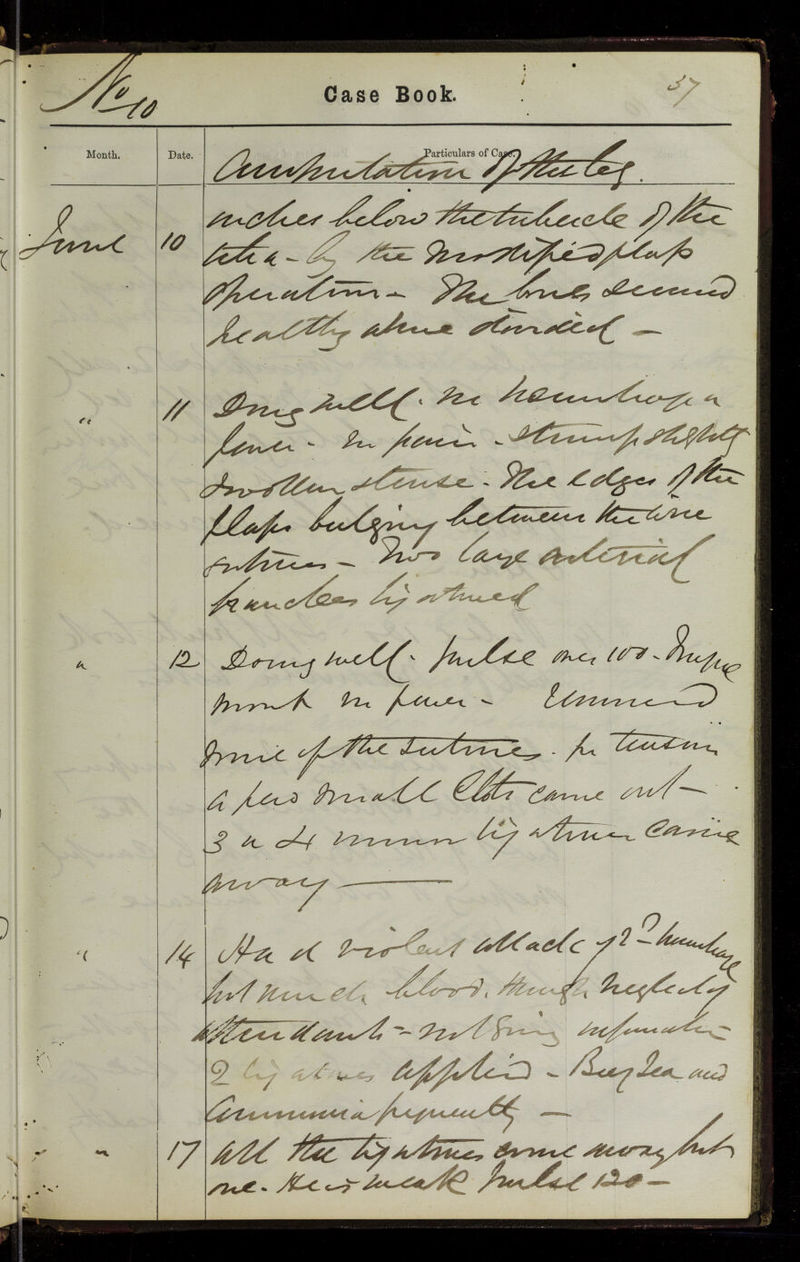 No 10
Case Book.
37
Month.
Date.
Particulars of Case.
Amputation of the leg.
June 10 inches below the tubercle of the
tibia - by the modified flap
operation - The bones seemed
healthy where divided -
" 11 Doing well. no hemorrhage or
fever - no pain - stump slightly
swollen & tense - The edges of the
flaps bulging between the wire
sutures - Two large arterial
branches ligatured
" 12 Doing well - pulse over 100 -
no fever - Removed
some of the sutures - tension
a few small clots came out -
3 or 4 ligatures came
away
" 14 Had a violent attack of 2ry hemorrhage
lost much blood, through neglect of
attendants - not giving information
2 ligatures applied - Beef Tea and
Ammonia frequently -
" 17 All the ligatures come away but
one - He is weak pulse 120 -